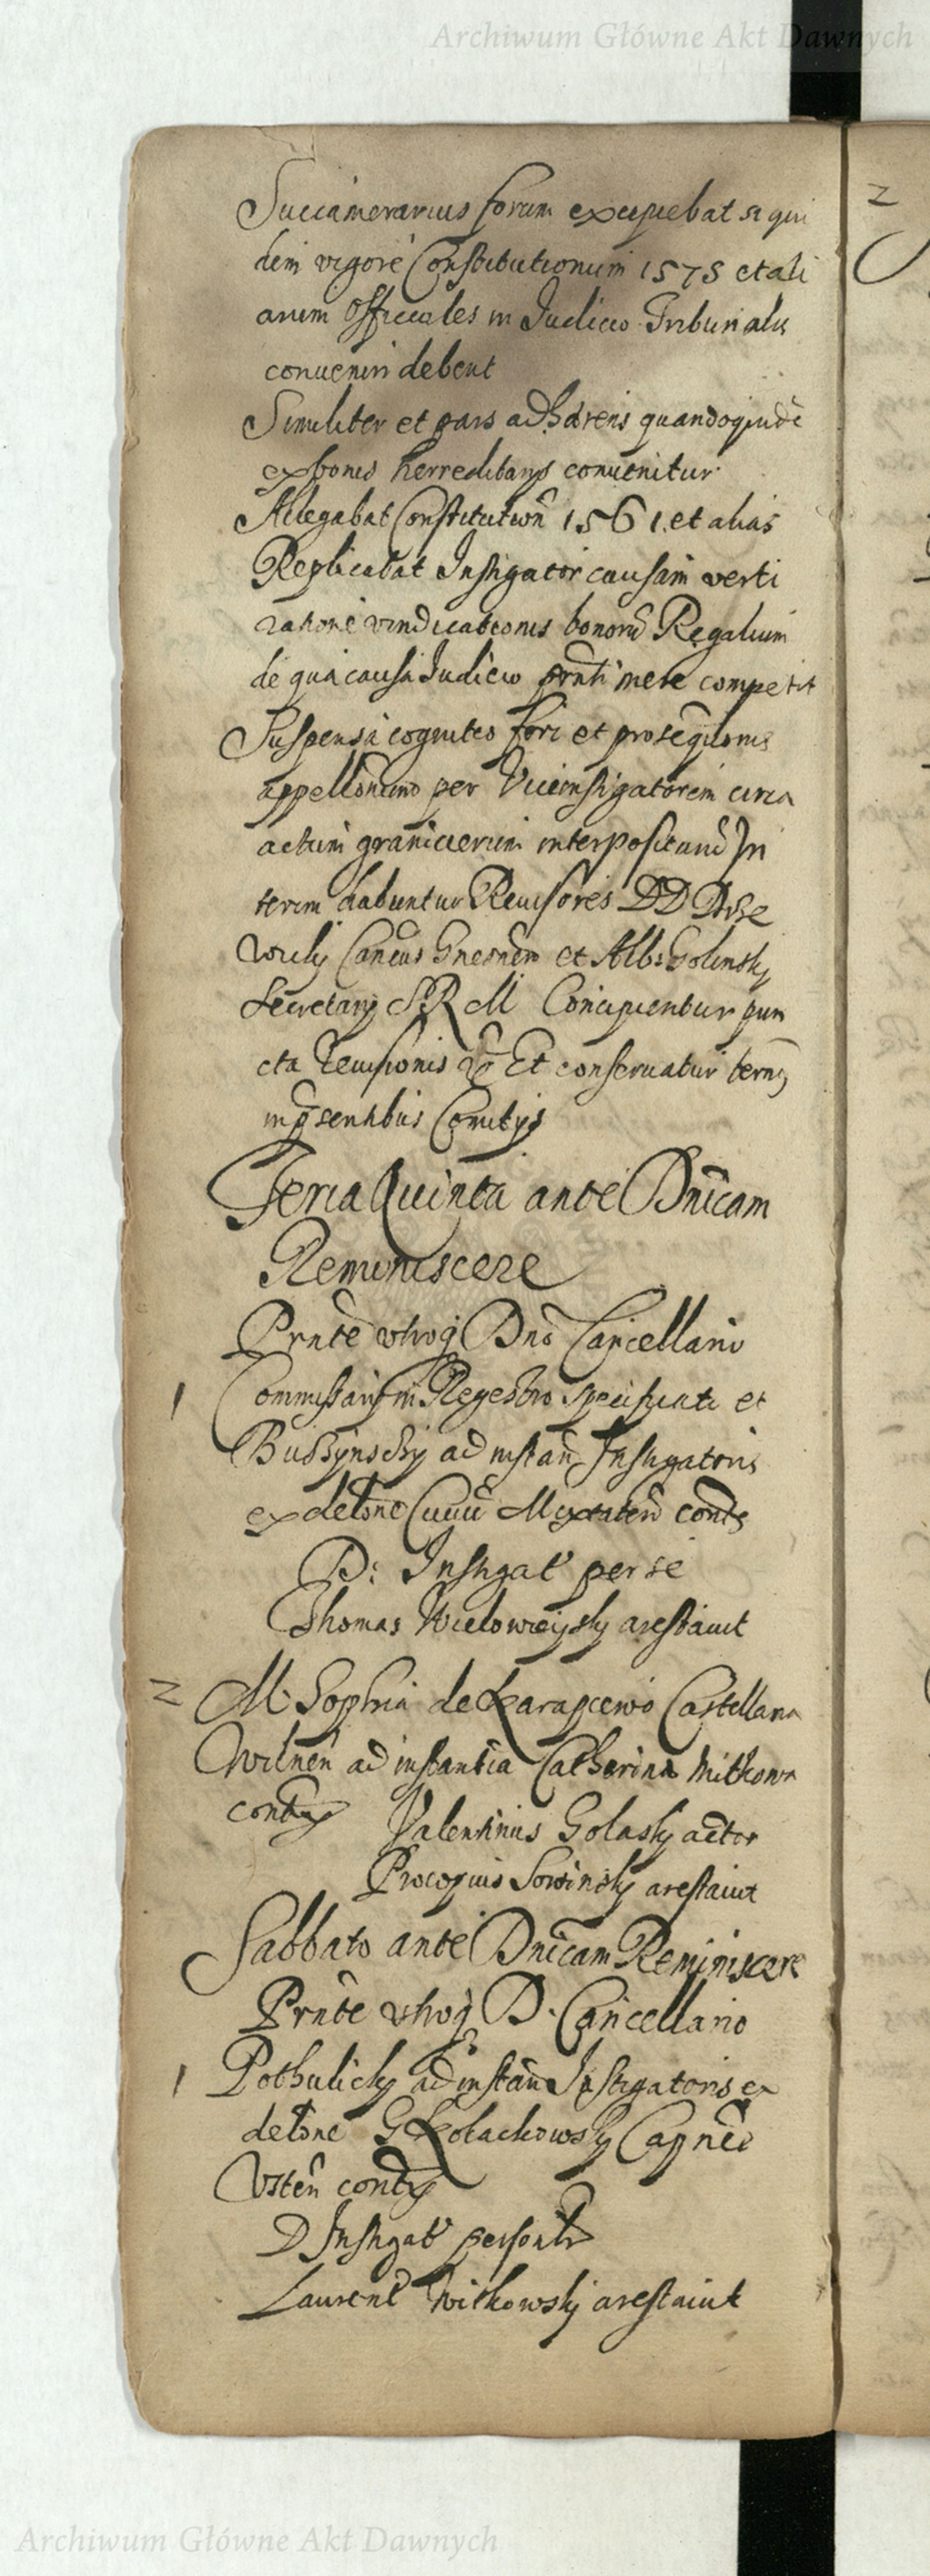 Archiwum Główne Akt Dawnych
Succamerarius forum excipiebat si qui
dem vigore Constitutionum 1575 et ali
arum Officiales in Iudicio Tribunalis
conueniri debent
Similiter et pars adhærens quandoquidē
ex bonis herreditarijs conuenitur
Allegabat Constitution̄ 1561. et alias
Replicabat Instigator causam verti
ratione vindicationis bonorū Regalium
de qua causa Iudicio prn̄ti mere competit
Suspensa cognitio fori et prosequōnis
appellōnum per Viceinstigatorem circa
actum granicierum interpositarū In
terim dabuntur Reuisores DD
Cancūs Gnesnēn et Alb: Golinsky
Secretarij S R M Concipientur pun
cta reuisionis Et conseruatur termī
in pn̄sentibus Comitijs
Feria Quinta ante Dnīcam
Reminiscere
Prn̄te vtroq Dnō Cancellario
1 Commissarij in Regestro specificati et
ad instan̄ Instigatoris
ex delōne contˢ
D: Instigatʳ per se
Thomas Wieloweysky arestauit
2 M Sophia de Castellana
Wilnēn ad instantia Catherina Mitkowa
contˢ Valentinus Golasky actor
Procopius Sowinsky arestauit
Sabbato ante Dnīcam Reminiscere
Prn̄te vtroq D. Cancellario
1 Pothulicky ad instan̄ Instigatoris ex
delōne G Kołackowsky Capnēo
Vsten̄ contˢ
D Instigatʳ
Laurentˢ Witkowsky arestauit
2
Archiwum Główne Akt Dawnych